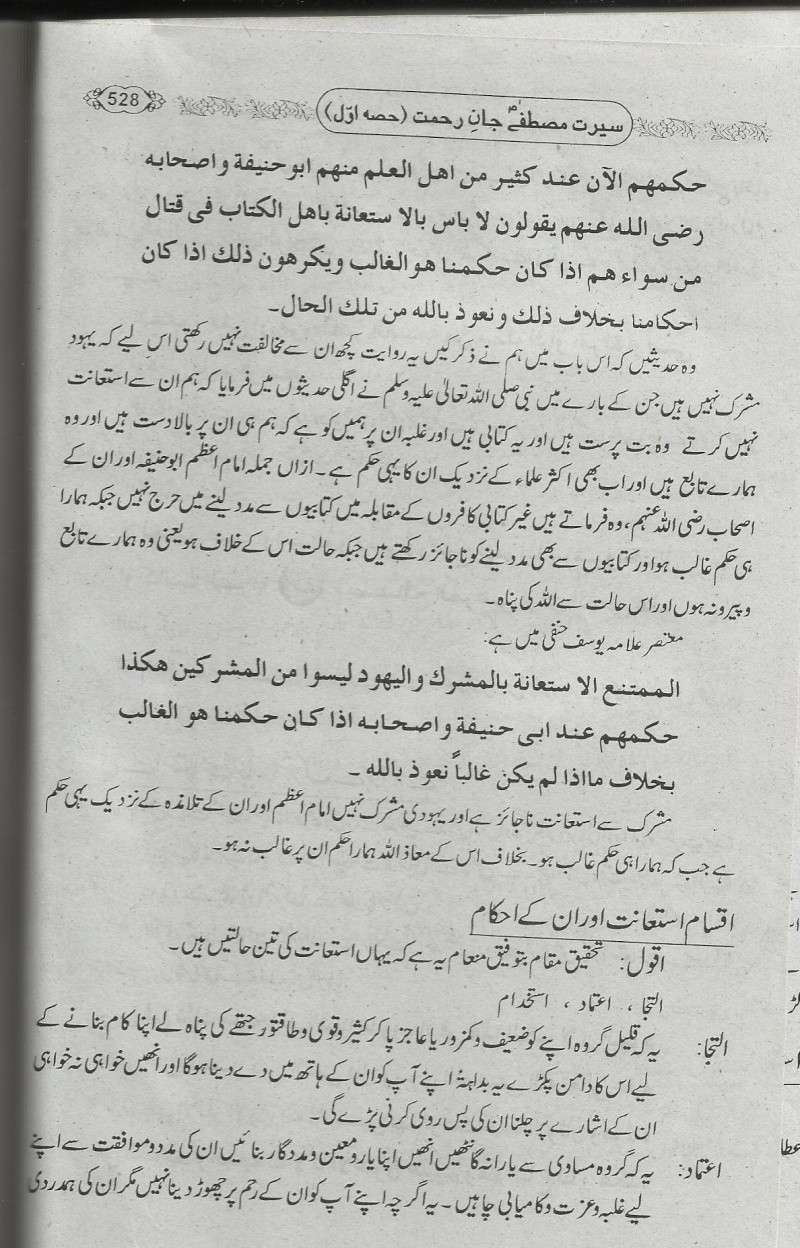 528
سیرت مصطفےٰ جانِ رحمت (حصہ اوّل)
حكمهم الآن عند كثير من اهل العلم منهم ابو حنيفة و اصحابه
رضى الله عنهم يقولون لا باس بالا ستعانة باهل الكتاب فى قتال
من سواء هم اذا كان حكمنا هو الغالب ويكرهون ذلك اذا كان
احكامنا بخلاف ذلك و نعوذ بالله من تلك الحال۔
وہ حدیثیں کہ اس باب میں ہم نے ذکر کیں یہ روایت کچھ ان سے مخالفت نہیں رکھتی اس لیے کہ یہود
مشرک نہیں ہیں جن کے بارے میں نبی صلی اللہ تعالیٰ علیہ وسلم نے اگلی حدیثوں میں فرمایا کہ ہم ان سے استعانت
نہیں کرتے وہ بت پرست ہیں اور یہ کتابی ہیں اور غلبہ ان پر ہمیں کو ہے کہ ہم ہی ان پر بالا دست ہیں اور وہ
ہمارے تابع ہیں اور اب بھی اکثر علماء کے نزدیک ان کا یہی حکم ہے۔ ازاں جملہ امام اعظم ابو حنیفہ اور ان کے
اصحاب رضی اللہ عنہم، وہ فرماتے ہیں غیر کتابی کافروں کے مقابلہ میں کتابیوں سے مدد لینے میں حرج نہیں جبکہ ہمارا
ہی حکم غالب ہو اور کتابیوں سے بھی مدد لینے کو ناجائز رکھتے ہیں جبکہ حالت اس کے خلاف ہو یعنی وہ ہمارے تابع
و پیرو نہ ہوں اور اس حالت سے اللہ کی پناہ۔
معتصر علامہ یوسف حنفی میں ہے:
الممتنع الا ستعانة بالمشرك و اليهود ليسوا من المشركين هكذا
حكمهم عند ابى حنيفة و اصحابه اذا كان حكمنا هو الغالب
بخلاف مااذا لم يكن غالباً نعوذ بالله ۔
مشرک سے استعانت ناجائز ہے اور یہودی مشرک نہیں امام اعظم اور ان کے تلامذہ کے نزدیک یہی حکم
ہے جب کہ ہمارا ہی حکم غالب ہو۔ بخلاف اس کے معاذ اللہ ہمارا حکم ان پر غالب نہ ہو۔
اقسام استعانت اور ان کے احکام
اقول: تحقیق مقام بتوفیق منعام یہ ہے کہ یہاں استعانت کی تین حالتیں ہیں۔
التجا ، اعتماد ، استخدام
التجا: یہ کہ قلیل گروہ اپنے کو ضعیف و کمزور یا عاجز پا کر کثیر و قوی و طاقتور جتھے کی پناہ لے اپنا کام بنانے کے
لیے اس کا دامن پکڑے یہ بداہۃً اپنے آپ کو ان کے ہاتھ میں دے دینا ہوگا اور انھیں خواہی نہ خواہی
ان کے اشارے پر چلنا ان کی پس روی کرنی پڑے گی۔
اعتماد: یہ کہ گروہ مساوی سے یارانہ گانٹھیں انھیں اپنا یار و معین و مددگار بنائیں ان کی مدد و موافقت سے اپنے
لیے غلبہ و عزت و کامیابی چاہیں۔ یہ اگر چہ اپنے آپ کو ان کے رحم پر چھوڑ دینا نہیں مگر ان کی ہمدردی